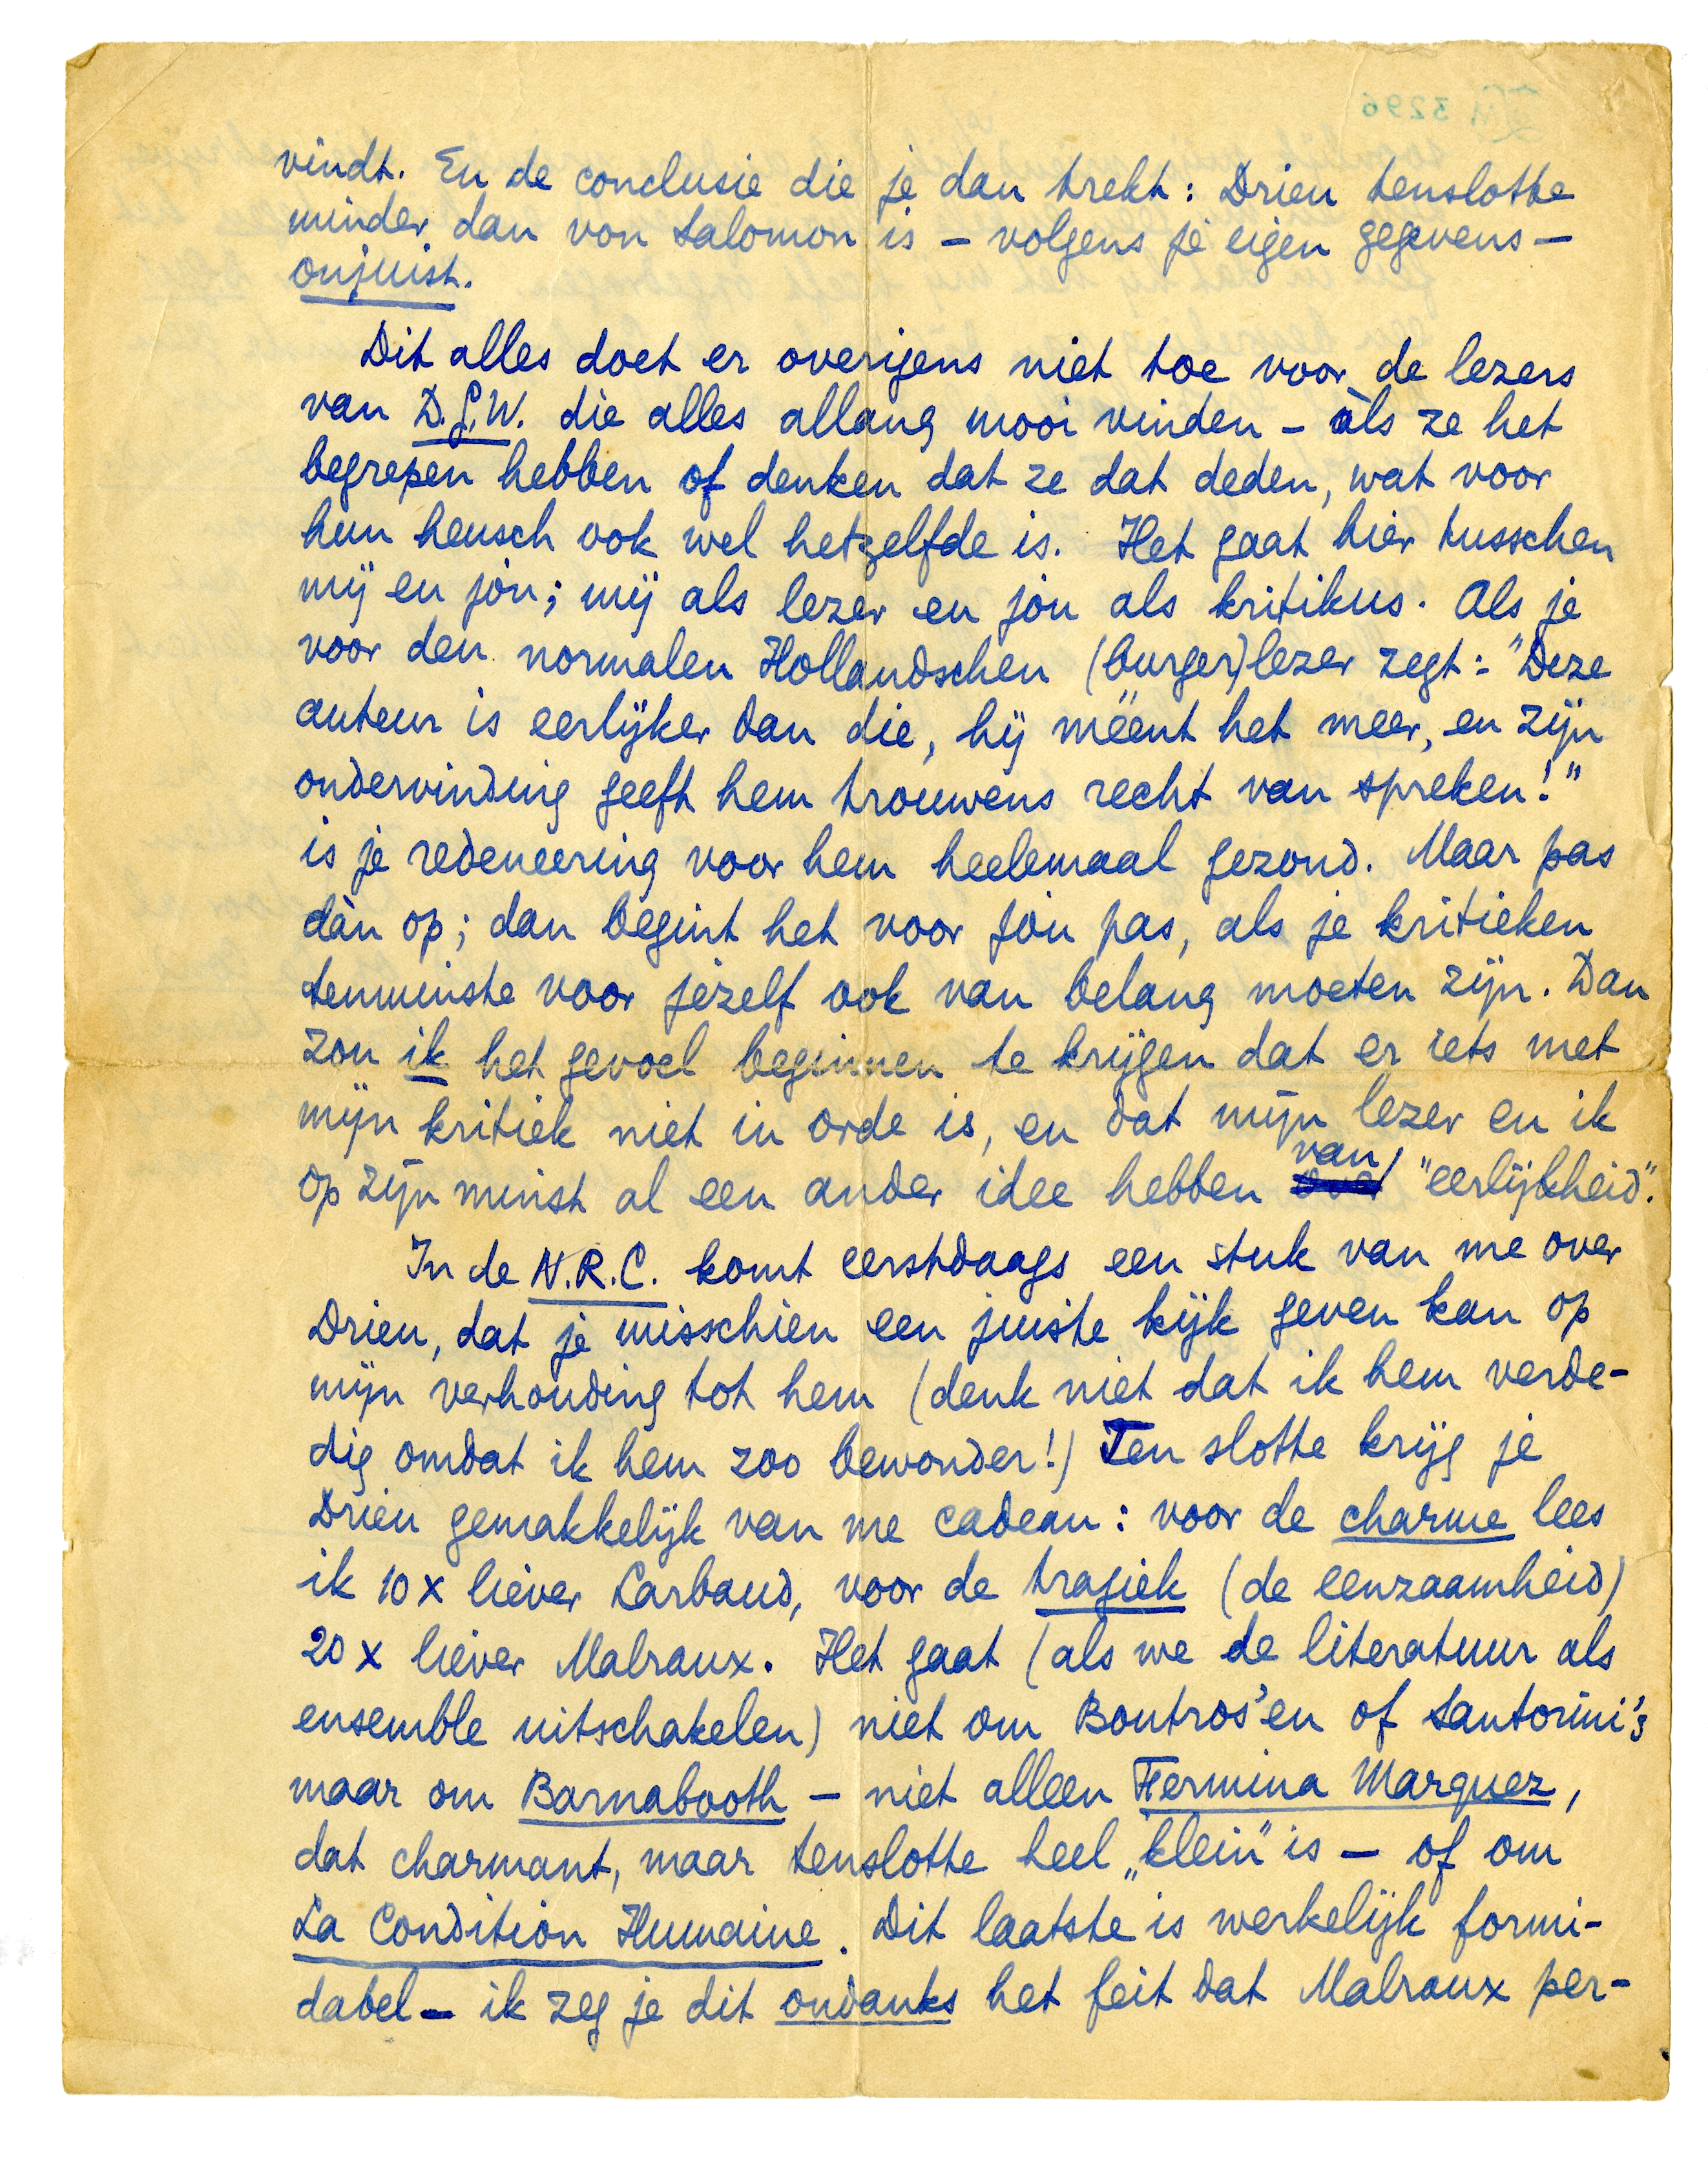 vindt. En de conclusie die je dan trekt: Drieu tenslotte
minder dan von Salomon is – volgens je eigen gegevens –
onjuist.
Dit alles doet er overigens niet toe voor de lezers
van D.G.W. die alles allang mooi vinden – àls ze het
begrepen hebben of denken dat ze dat deden, wat voor
hun heusch ook wel hetzelfde is. Het gaat hier tusschen
mij en jòu; mij als lezer en jòu als kritikus. Als je
voor den normalen Hollandschen (burger)lezer zegt: "Deze
auteur is eerlijker dan die, hij méént het meer, en zijn
ondervinding geeft hem trouwens recht van spreken!"
is je redeneering voor hem heelemaal gezond. Maar pas
dàn op; dan begint het voor jòu pas, als je kritieken
tenminste voor jezelf ook van belang moeten zijn. Dan
zou ik het gevoel beginnen te krijgen dat er iets met
mijn kritiek niet in orde is, en dat mijn lezer en ik
op zijn minst al een ander idee hebben van "eerlijkheid".
In de N.R.C. komt eerstdaags een stuk van me over
Drieu, dat je misschien een juiste kijk geven kan op
mijn verhouding tot hem (denk niet dat ik hem verde-
dig omdat ik hem zoo bewonder!) Ten slotte krijg je
Drieu gemakkelijk van me cadeau: voor de charme lees
ik 10 x liever Larbaud, voor de tragiek (de eenzaamheid)
20 x liever Malraux. Het gaat (als we de literatuur als
ensemble uitschakelen) niet om Boutros'en of Santorini's
maar om Barnabooth – niet alleen Fermina Marquez,
dat charmant, maar tenslotte heel „klein" is – of om
La Condition Humaine. Dit laatste is werkelijk formi-
dabel – ik zeg je dit ondanks het feit dat Malraux per-